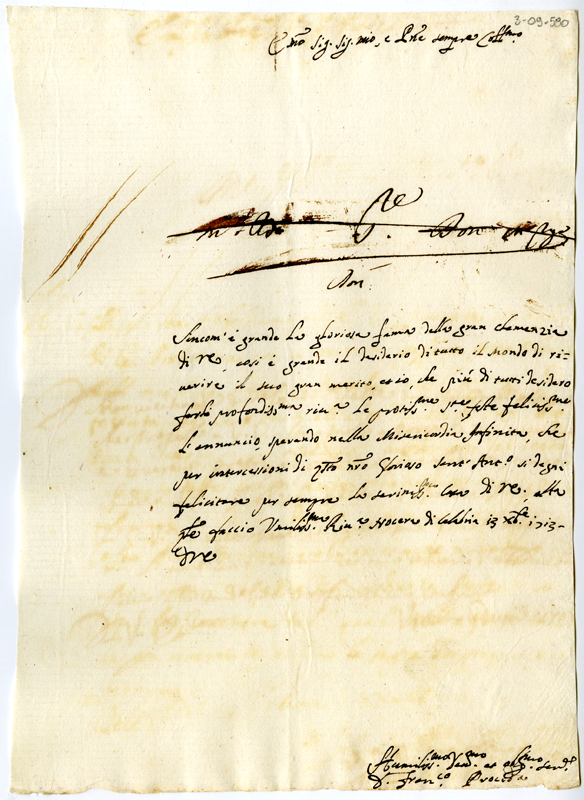 3-09-590
Emo Sig. Sig. mio, e Pne sempre Collmo
Don
Sincom' è grande la gloriosa fama della gran clemenzia
di VE, così è grande il desiderio di tutto il mondo di ri-
uerire il suo gran merito, et io, che più di tutti desidero
farli profondissma riua le prossme ste feste felicissme
L'annuncio, sperando nella Misericordia Infinita, che
per intercessioni di qsto nro Glorioso Sant' Anto si degni
felicitare per sempre la serinissma Casa di VE, alla
qle faccio Umilissma Riua Nocera di Calabria 13 Xbre 1713-
DVE
Humilissmo Deuo et serue
D. Franco